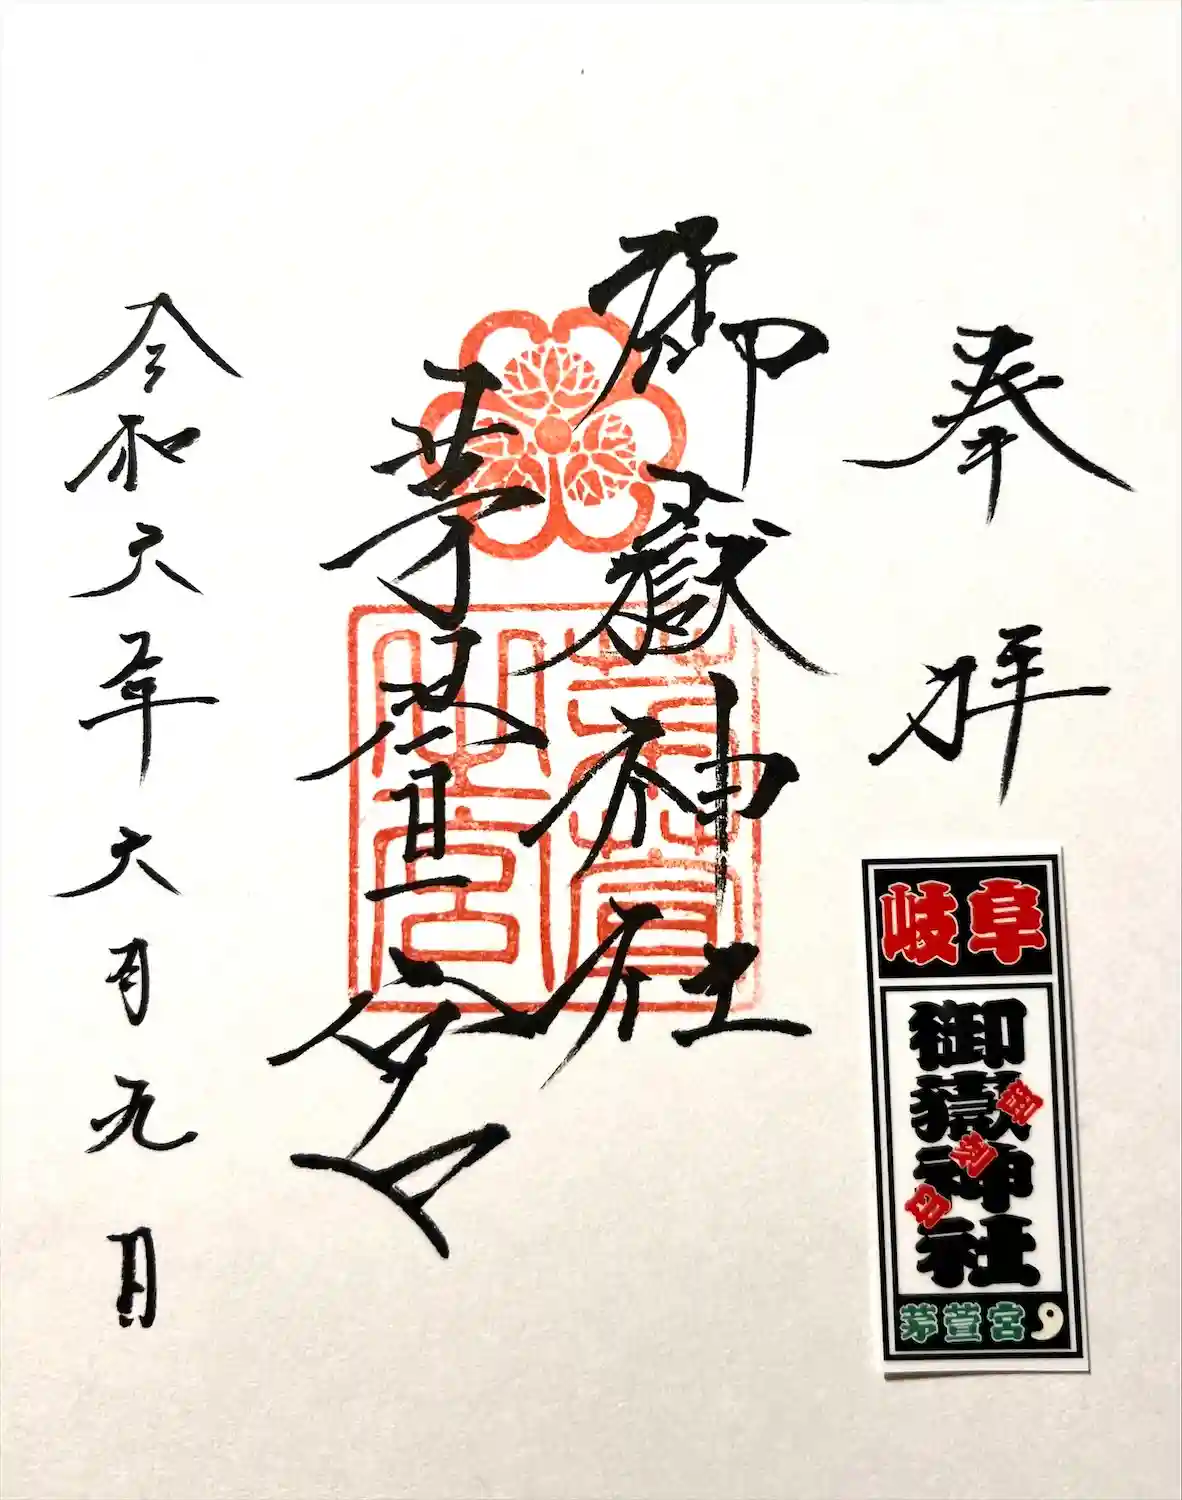 奉拝
御嶽神社
茅萱宮
令和六年六月九日
茅萱
之宮
岐阜
御嶽神社
御朱印
茅萱宮